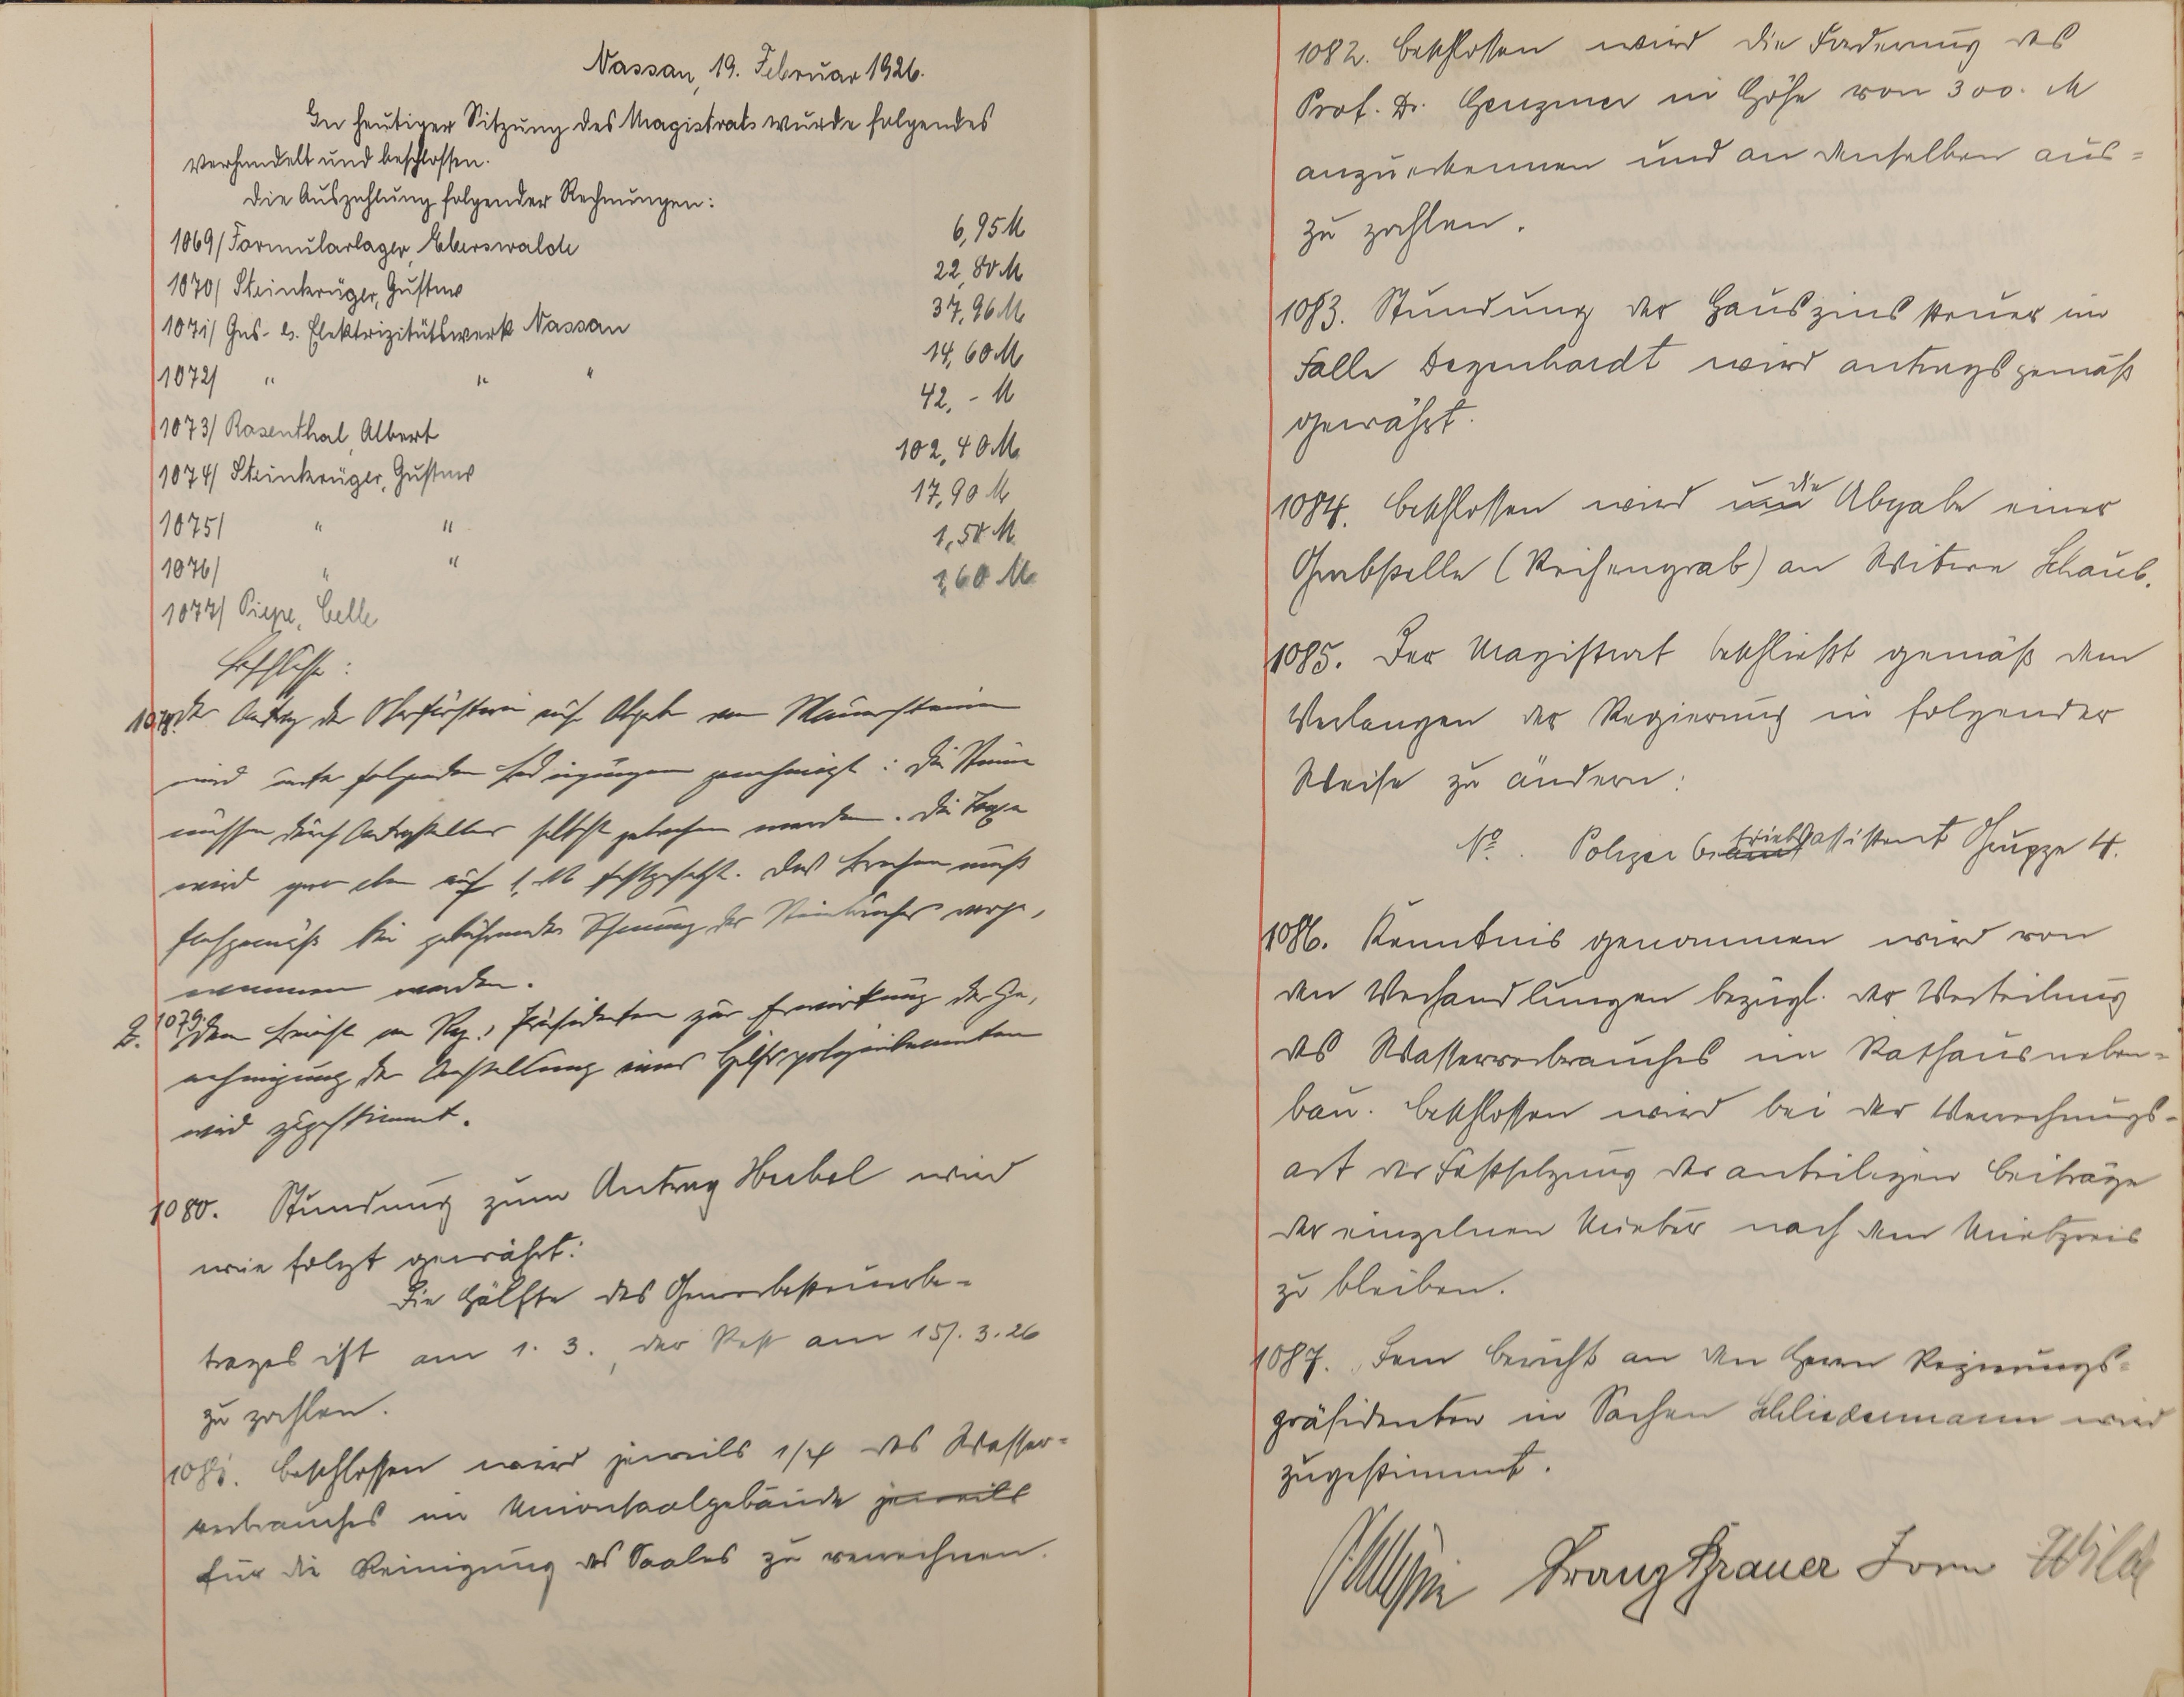 Nassau, 19. Februar 1926.
In heutiger Sitzung des Magistrats wurde folgendes
verhandelt und beschlossen.
Die Auszahlung folgender Rechnungen:
1069/ Formularlager, Eberswalde 6,95 M
1070/ Steinkrüger, Gustav 22,80 M
1071/ Gas- u. Elektrizitätswerk Nassau 37,96 M
1072/ " " " 14,60 M
1073/ Rosenthal, Albert 42,- M
1074/ Steinkrüger, Gustav 102,40 M
1075/ " " 17,90 M
1076/ " " 1,50 M
1077/ Piepe, Celle 1,60 M
Beschlüsse:
1078. Der Antrag der Oberförsterei auf Abgabe von Mauersteinen
wird unter folgenden Bedingungen genehmigt: Die Steine
müssen durch Antragsteller selbst gebrochen werden. Die Taxe
wird pro cbm auf 1 M festgesetzt. Das Brechen muß
fachgemäß bei gebührender Schonung des Steinbruches vorge-
nommen werden.
2. 1079. Dem Bericht an Reg. Präsidenten zur Erwirkung der Ge-
nehmigung der Anstellung eines Hilfspolizeibeamten
wird zugestimmt.
1080. Stundung zum Antrag Heubel wird
wie folgt gewährt:
Die Hälfte des Gewerbesteuerbe-
trages ist am 1. 3., der Rest am 15. 3. 26
zu zahlen.
1081. Beschlossen wird jeweils 1/4 des Wasser-
verbrauches im Unionsaalgebäude jeweils
für die Reinigung des Saales zu verrechnen.
1082. Beschlossen wird die Forderung des
Prof. Dr. Genzmer in Höhe von 300. M
anzuerkennen und an denselben aus-
zu zahlen.
1083. Stundung der Hauszinssteuer im
Falle Degenhardt wird antragsgemäß
gewährt.
1084. Beschlossen wird die Abgabe einer
Grabstelle (Reihengrab) an Witwe Schaub.
1085. Der Magistrat beschließt gemäß dem
Verlangen der Regierung in folgender
Weise zu ändern:
No. Polizei Betriebsassistent Gruppe 4.
1086. Kenntnis genommen wird von
den Verhandlungen bezügl. der Verteilung
des Wasserverbrauches im Rathausneben-
bau. Beschlossen wird bei der Verrechnungs-
art der Festsetzung der anteiligen Beiträge
der einzelnen Mieter nach dem Mietpreis
zu bleiben.
1087. Dem Bericht an den Herrn Regierungs-
präsidenten in Sachen Schliedermann wird
zugestimmt.
Franz Brauer Wilh